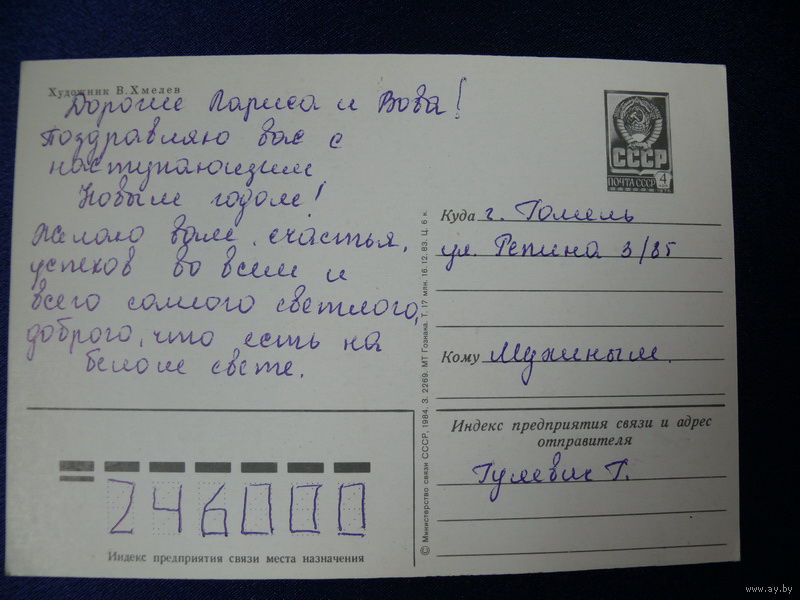 Художник В. Хмелев
Дорогие Лариса и Вова!
Поздравляю вас с
наступающим
Новым годом!
Желаю вам счастья,
успехов во всем и
всего самого светлого,
доброго, что есть на
белом свете.
246000
Индекс предприятия связи места назначения
© Министерство связи СССР, 1984. З. 2269. МТ Гознака. Т. 17 млн. 16.12.83. Ц. 6 к.
СССР
ПОЧТА СССР 4
Куда г. Гомель
ул. Репина 3/85
Кому Мужиным.
Индекс предприятия связи и адрес
отправителя
Гулевич Г.
www.ay.by